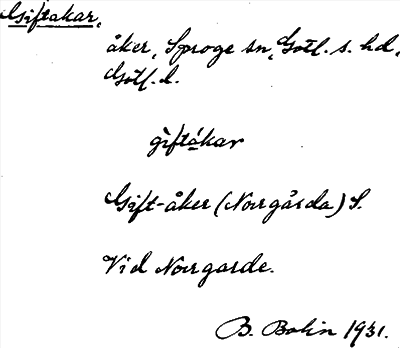 Giftakar,
åker, Sproge sn, Gotl. s. hd,
Gotl. l.
gìftákar
Gift-åker (Norrgårda) S.
Vid Norrgarde.
B. Bolin 1931.